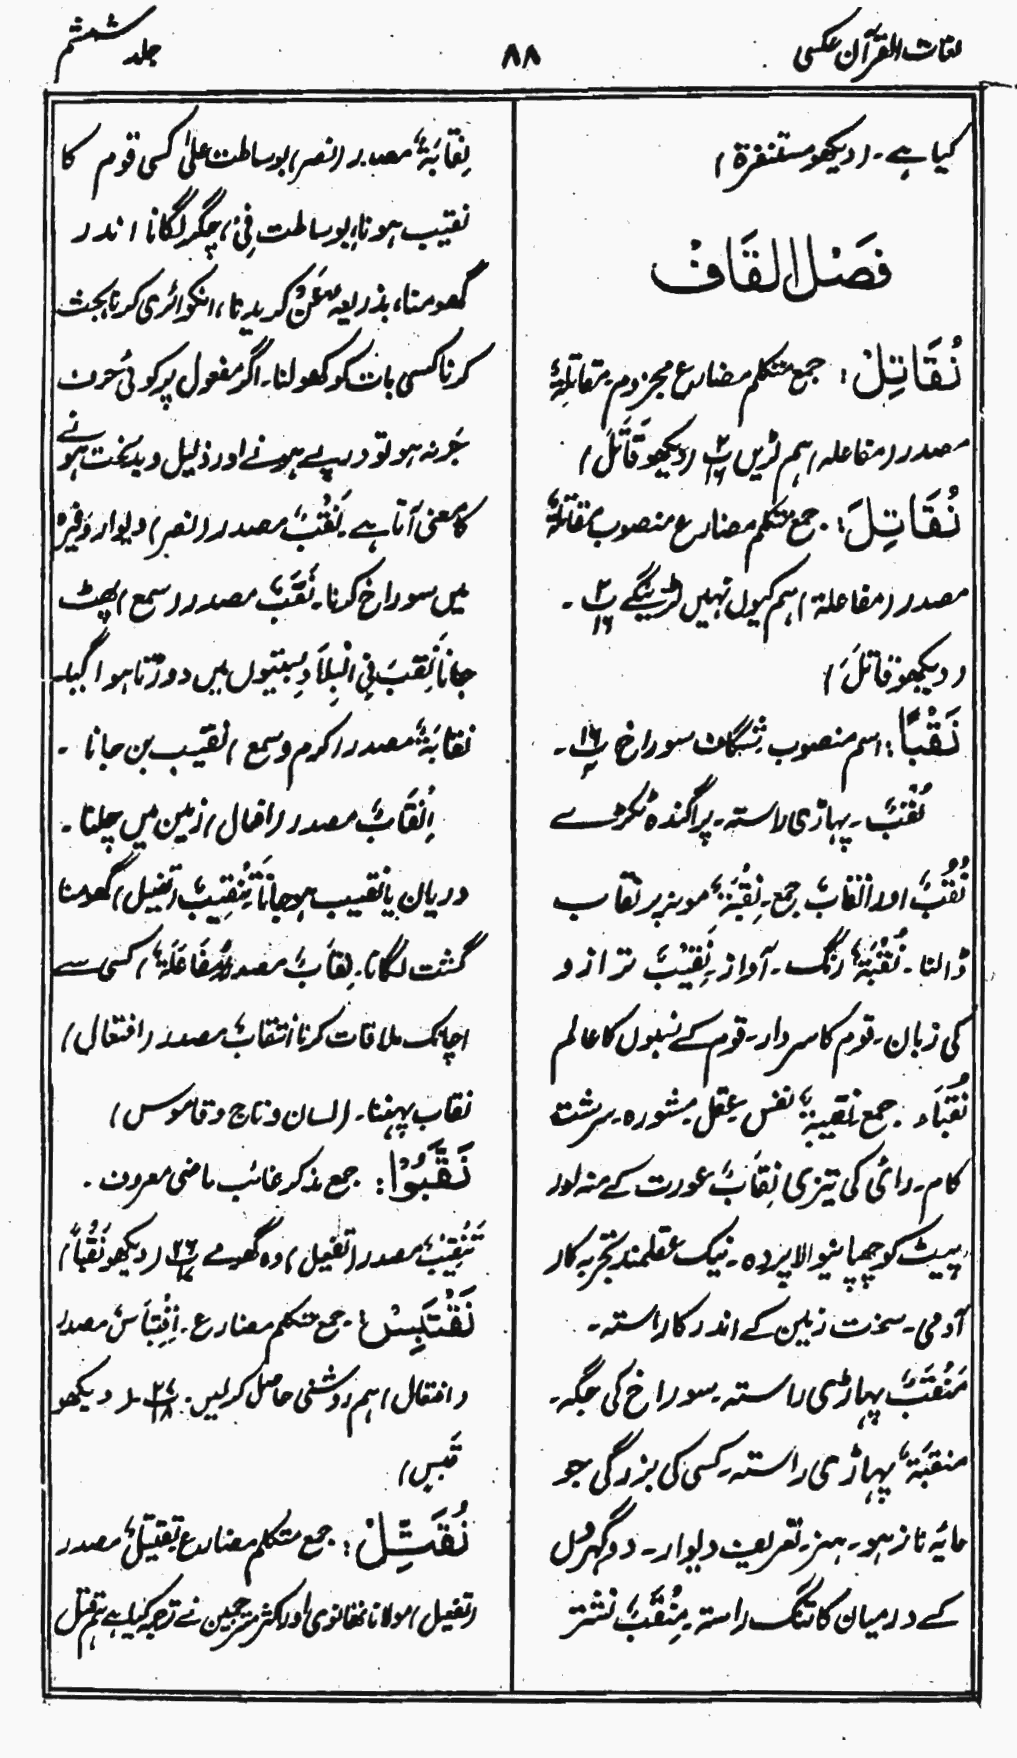 لغات القرآن عکسی
۸۸
جلد ششم
کیا ہے۔ (دیکھو مستنفرۃ)
فَصْلُ الْقَافْ
نُقَاتِلْ: جمع متکلم مضارع مجزوم۔ مقاتلۃٌ
مصدر (مفاعلہ) ہم لڑیں پ ۲/۱۶ (دیکھو قَاتَلَ)
نُقَاتِلَ: جمع متکلم مضارع منصوب مقاتلۃٌ
مصدر (مفاعلۃ) ہم کیوں نہیں لڑینگے پ ۲/۱۶۔
(دیکھو قَاتَلَ)
نَقْبًا: اسم منصوب شگاف سوراخ پ ۱۶/۲۔
نُقْبٌ۔ پہاڑی راستہ۔ پراگندہ ٹکڑے
نُقُبٌ اور انقابٌ جمع۔ نِقْبَۃٌ مونہ پر نقاب
ڈالنا۔ نُقْبَۃٌ رنگ۔ آواز۔ نَقِیْبٌ ترازو
کی زبان۔ قوم کا سردار۔ قوم کے نسبوں کا عالم
نُقَبَاء جمع نقیبۃٌ نفس۔ عقل۔ مشورہ۔ سرشت
کام۔ رائی کی تیزی نِقَابٌ عورت کے منہ اور
پیٹ کو چھپانیوالا پردہ۔ نیک عقلمند تجربہ کار
آدمی۔ سخت زمین کے اندر کا راستہ۔
مَنْقَبٌ پہاڑی راستہ۔ سوراخ کی جگہ۔
منقبَۃٌ پہاڑی راستہ۔ کسی کی بزرگی جو
مایہ ناز ہو۔ ہنر۔ تعریف دیوار۔ دو گھروں
کے درمیان کا تنگ راستہ۔ مِنْقَبٌ نشتر
نِقَابَۃٌ مصدر (نصر) بوساطت علیٰ کسی قوم کا
نقیب ہونا، بوساطت فِیْ، چگر لگانا اندر
گھومنا، بذریعہ عَنْ کریدنا، انکوائری کرنا بحث
کرنا کسی بات کو کھولنا۔ اگر مفعول پر کوئی حرف
جر نہ ہو تو درپے ہونے اور ذلیل و بدبخت ہونے
کا معنی آتا ہے۔ نَقْبٌ مصدر (نصر) دیوار وغیرہ
میں سوراخ کرنا۔ نَقَبٌ مصدر (سمع) پھٹ
جانا نَقَبَ فِی الْبِلَادِ بستیوں میں دوڑتا ہوا گیا۔
نقابۃٌ مصدر (کرم وسمع) نقیب بن جانا۔
اِنْقَابٌ مصدر (افعال) زمین میں چلنا۔
دربان یا نقیب ہو جانا تَنْقِیْبٌ (تفیل) گھومنا
گشت لگانا۔ نِقَابٌ مصدر (مُفَاعَلَۃ) کسی سے
اچانک ملاقات کرنا انتقابٌ مصدر (افتعال)
نقاب پہننا۔ (لسان و تاج و قاموس)
نَقَّبُوْا: جمع مذکر غائب ماضی معروف۔
تَنْقِیْبٌ مصدر (تفعیل) وہ گھومے پ ۲۶/۱۷ (دیکھو نَقْبًا)
نَقْتَبِسْ: جمع متکلم مضارع۔ اِقْتِبَاسٌ مصدر
(افتعال) ہم روشنی حاصل کرلیں۔ پ ۲۷/۱۸۔ (دیکھو
قَبَس)
نُقَتِّلُ: جمع متکلم مضارع تقتیلٌ مصدر
(تفعیل) مولانا تھانوی اور اکثر مترجمین نے ترجمہ کیا ہے ہم قتل